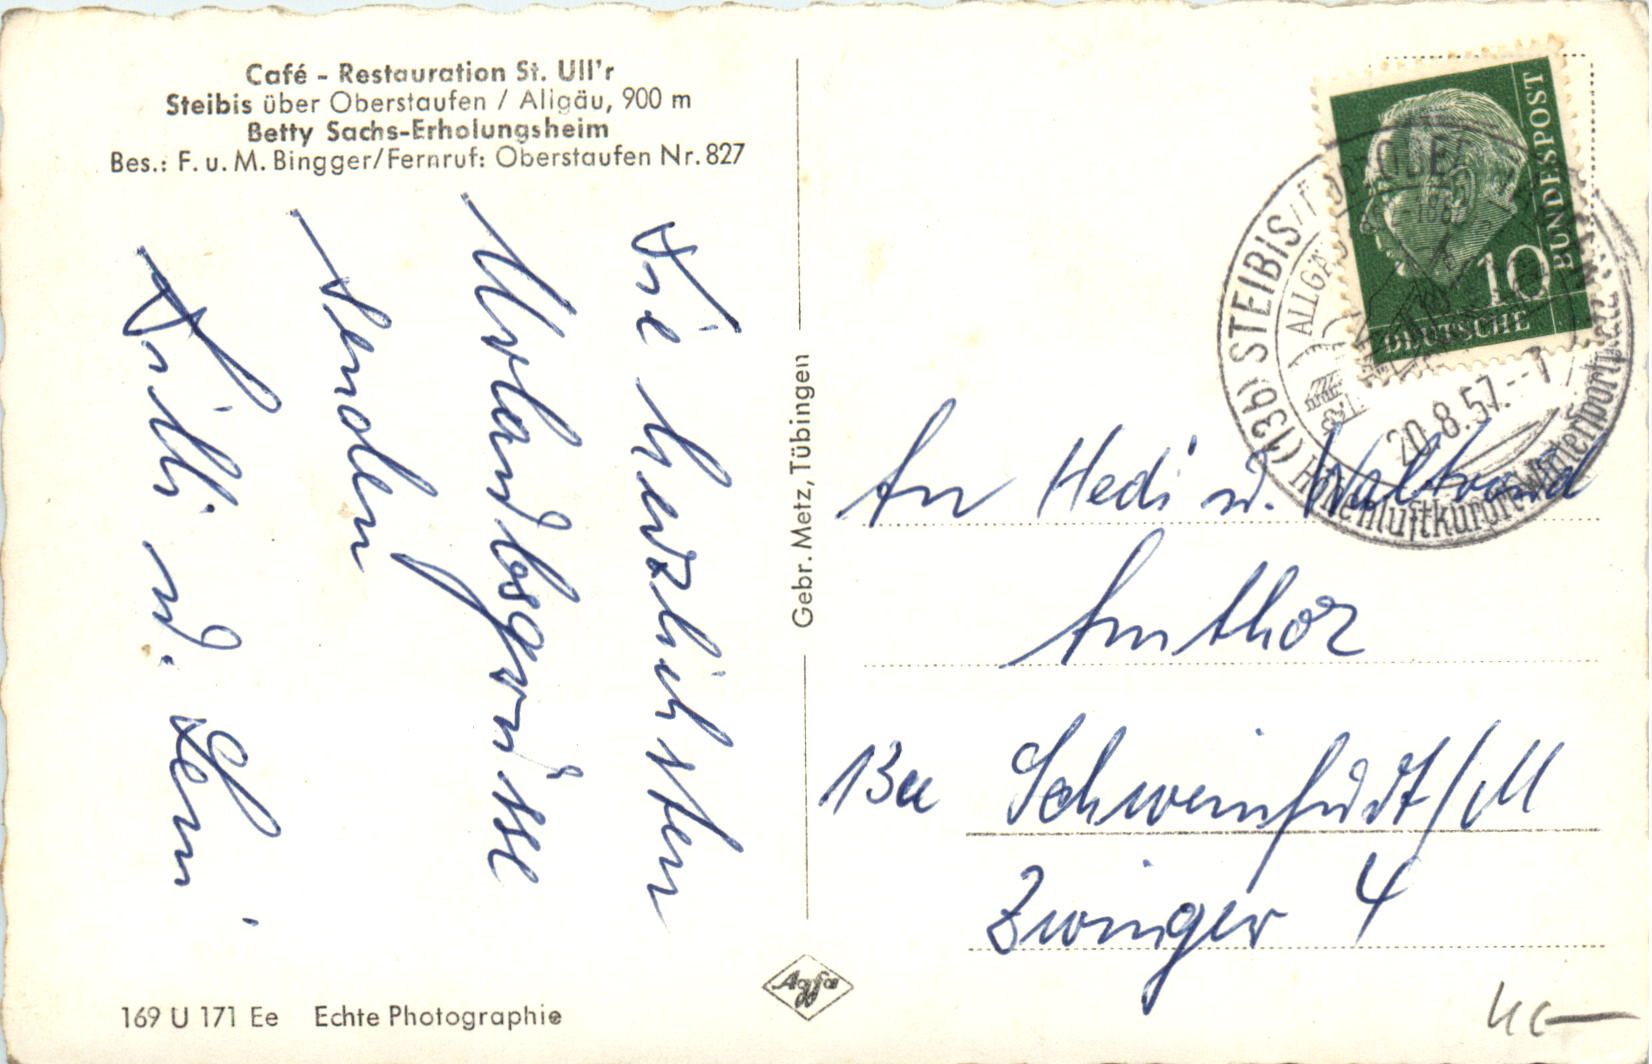 Café - Restauration St. Ull'r
Steibis über Oberstaufen / Allgäu, 900 m
Betty Sachs-Erholungsheim
Bes.: F. u. M. Bingger/Fernruf: Oberstaufen Nr. 827
Die herzlichsten
Urlaubsgrüsse
senden
Willi u. Leni.
Gebr. Metz, Tübingen
DEUTSCHE
BUNDESPOST
10
(13b) STEIBIS
ALLGÄU
20.8.57.--7
Höhenluftkurort-Wintersportplatz
An Hedi u. Waltraud
Amthor
13a Schweinfurt/M
Zwinger 4
Agfa
169 U 171 Ee Echte Photographie